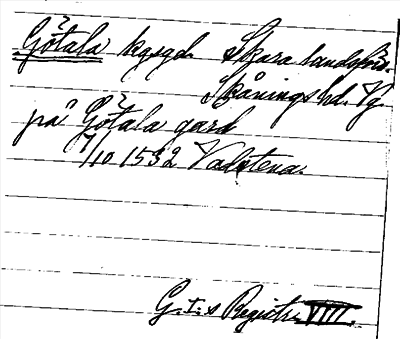 Götala kgsgd. Skara landsförs.
Skånings hd. Vg
på Götala gard
7/10 1532 Vadstena.
G. I:s Registr. VIII.